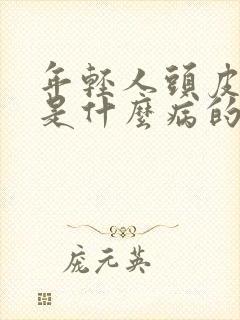 年輕人頭皮
是什麼病的
庞元英